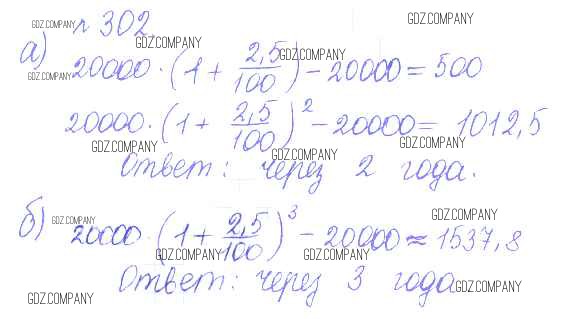 GDZ.COMPANY № 302 GDZ.COMPANY
GDZ.COMPANY GDZ.COMPANY
а) GDZ.COMPANY 20000·(1+2,5/100)-20000=500
20000·(1+2,5/100)²-20000=1012,5
GDZ.COMPANY GDZ.COMPANY GDZ.COMPANY
Ответ: через 2 года.
б) GDZ.COMPANY 20000·(1+2,5/100)³-20000≈1537,8 GDZ.COMPANY
GDZ.COMPANY GDZ.COMPANY
Ответ: через 3 года GDZ.COMPANY
GDZ.COMPANY